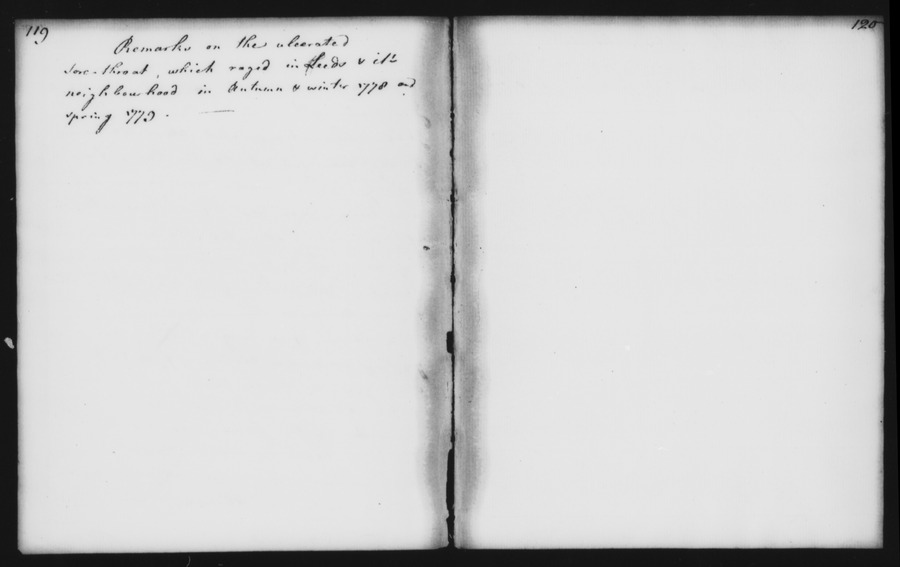 119
Remarks on the ulcerated
sore-throat, which raged in Leeds & its
neighbourhood in Autumn & winter 1778 and
spring 1779. —
120